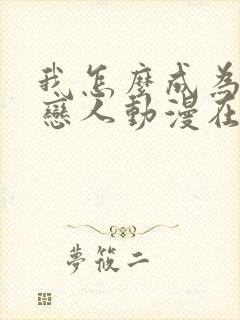 我怎麼成為
戀人動漫在
夢筱二